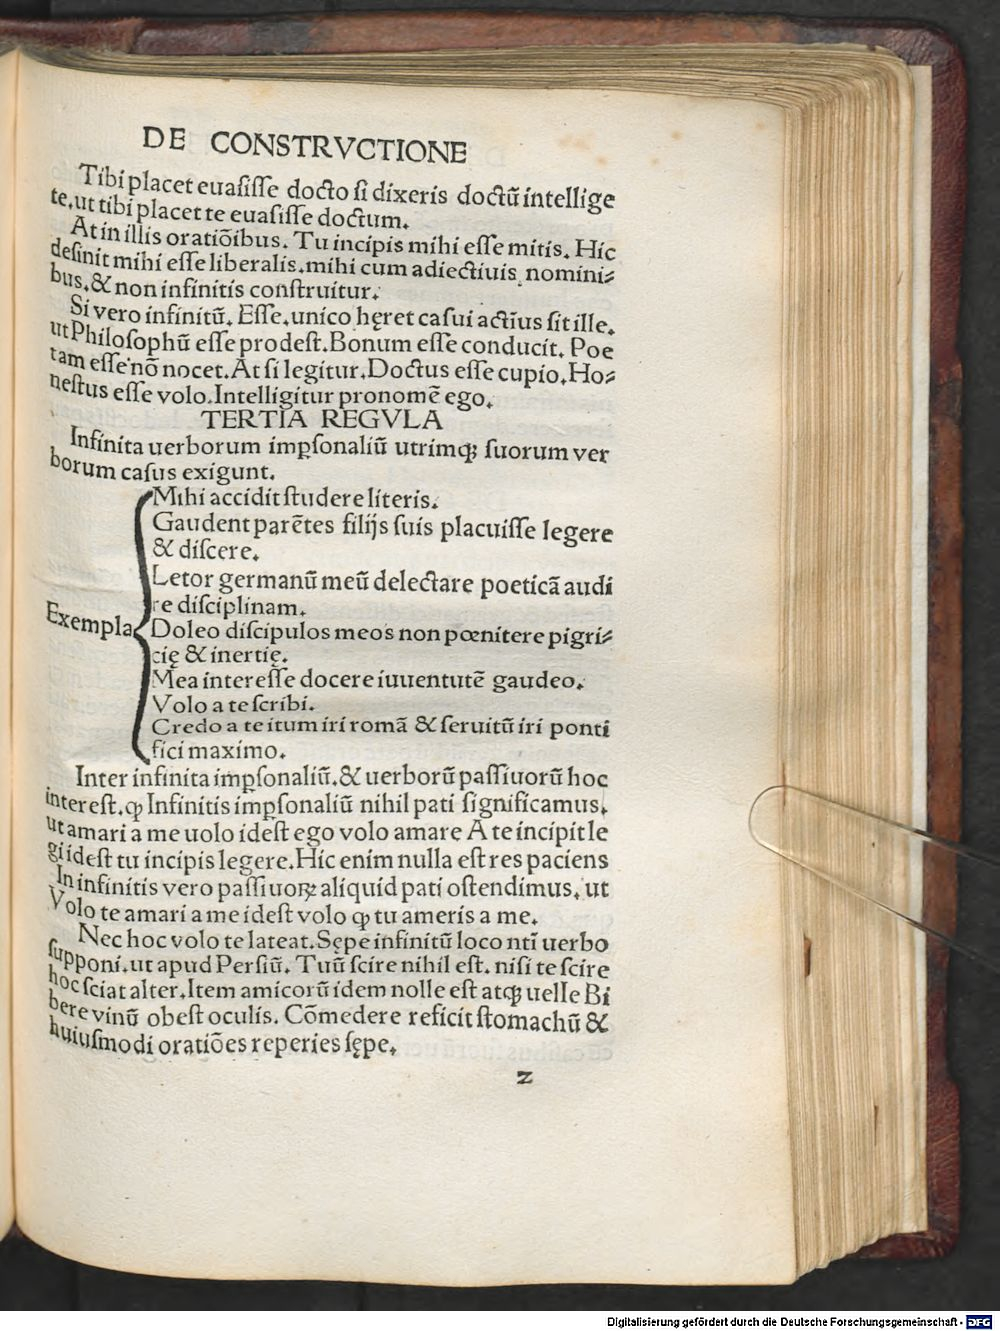 DE CONSTRVCTIONE
Tibi placet euasiſſe docto ſi dixeris doctū intellige
te,ut tibi placet te euaſiſſe doctum.
At in illis oratiōibus. Tu incipis mihi eſſe mitis. Hic
deſinit mihi eſſe liberalis.mihi cum adiectiuis nomini⸗
bus,& non infinitis conſtruitur.
Si vero infinitū. Eſſe,unico hęret caſui actius ſit ille.
ut Philoſophū eſſe prodeſt.Bonum eſſe conducit. Poe
tam eſſe nō nocet.At ſi legitur.Doctus eſſe cupio.Ho⸗
neſtus eſſe volo.Intelligitur pronomē ego.
TERTIA REGVLA
Infinita uerborum imꝑſonaliū utrimqꝫ ſuorum ver
borum caſus exigunt.
Mihi accidit ſtudere literis.
Gaudent parētes filijs ſuis placuiſſe legere
& diſcere.
Letor germanū meū delectare poeticā audi
re diſciplinam.
Exempla
Doleo diſcipulos meos non pœnitere pigri⸗
cię & inertię.
Mea intereſſe docere iuuentutē gaudeo.
Volo a te ſcribi.
Credo a te itum iri romā & ſeruitū iri ponti
fici maximo.
Inter infinita imꝑſonaliū.& uerborū paſſiuorū hoc
intereſt.ꝙ Infinitis imꝑſonaliū nihil pati ſignificamus.
ut amari a me uolo ideſt ego volo amare A te incipit le
gi ideſt tu incipis legere.Hic enim nulla eſt res paciens
In infinitis vero paſſiuoꝝ aliquid pati oſtendimus, ut
Volo te amari a me ideſt volo ꝙ tu ameris a me.
Nec hoc volo te lateat.Sępe infinitū loco nt̄i uerbo
ſupponi.ut apud Perſiū. Tuū ſcire nihil eſt. niſi te ſcire
hoc ſciat alter.Item amicorū idem nolle eſt atqꝫ uelle Bi
bere vinū obeſt oculis. Cōmedere reficit ſtomachū &
huiuſmodi oratiōes reperies ſępe.
z
Digitalisierung gefördert durch die Deutsche Forschungsgemeinschaft - DFG